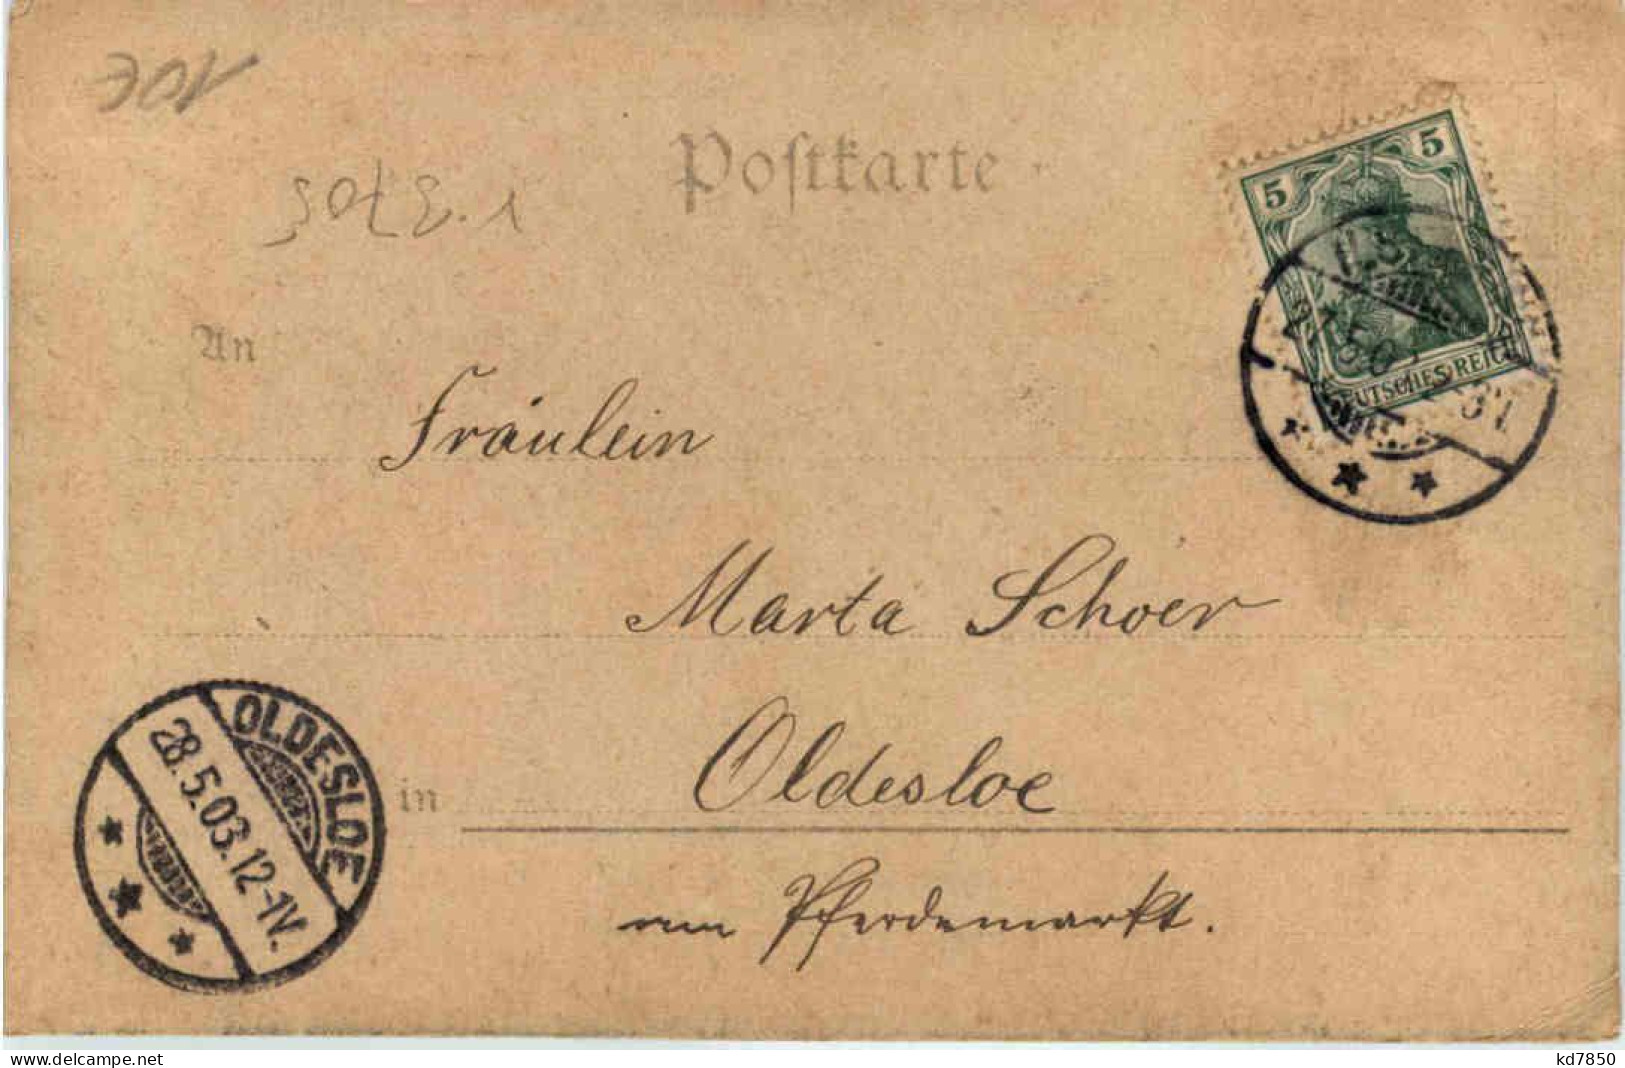 10€
Postkarte
5 5
DEUTSCHES REICH
An
Fräulein
Marta Schöer
in Oldesloe
am Pferdemarkt.
OLDESLOE
28.5.03.12-1V.
kd7850
www.delcampe.net